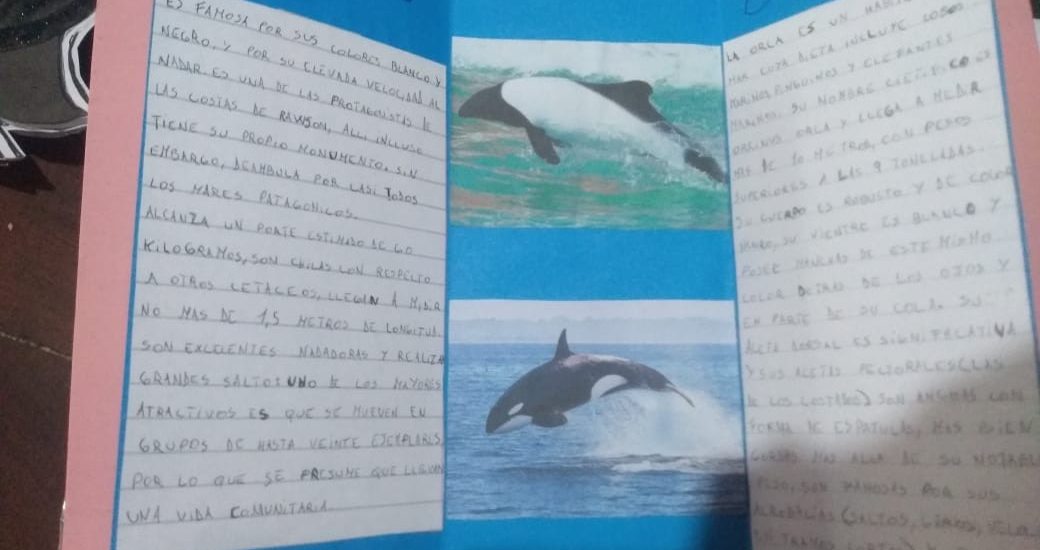 ES FAMOSA POR SUS COLORES BLANCO Y
NEGRO, Y POR SU ELEVADA VELOCIDAD AL
NADAR. ES UNA DE LAS PROTAGONISTAS DE
LAS COSTAS DE RAWSON, ALLI INCLUSO
TIENE SU PROPIO MONUMENTO. SIN
EMBARGO, DEAMBULA POR CASI TODOS
LOS MARES PATAGONICOS.
ALCANZA UN PORTE ESTIMADO DE 60
KILOGRAMOS, SON CHICAS CON RESPECTO
A OTROS CETACEOS, LLEGAN A MEDIR
NO MAS DE 1,5 METROS DE LONGITUD.
SON EXCELENTES NADADORAS Y REALIZA
GRANDES SALTOS UNO DE LOS MAYORES
ATRACTIVOS ES QUE SE MUEVEN EN
GRUPOS DE HASTA VEINTE EJEMPLARES,
POR LO QUE SE PRESUME QUE LLEVAN
UNA VIDA COMUNITARIA.
LA ORCA ES UN
MAR CUYA DIETA INCLUYE LOBOS
MARINOS PINGUINOS Y ELEFANTES
MARINOS. SU NOMBRE CIENTIFICO ES
ORCINUS ORCA Y LLEGA A MEDIR
MAS DE 10 METROS, CON PESOS
SUPERIORES A LAS 9 TONELADAS.
SU CUERPO ES ROBUSTO Y DE COLOR
NEGRO, SU VIENTRE ES BLANCO Y
POSEE MANCHAS DE ESTE MISMO
COLOR DETRAS DE LOS OJOS Y
EN PARTE DE SU COLA. SU
ALETA DORSAL ES SIGNIFICATIVA
Y SUS ALETAS PECTORALES (LAS
DE LOS COSTADOS) SON ANCHAS CON
FORMA DE ESPATULAS, MAS BIEN
MAS ALLA DE SU NOTABLE
PESO, SON FAMOSAS POR SUS
ACROBACIAS (SALTOS, GIROS,